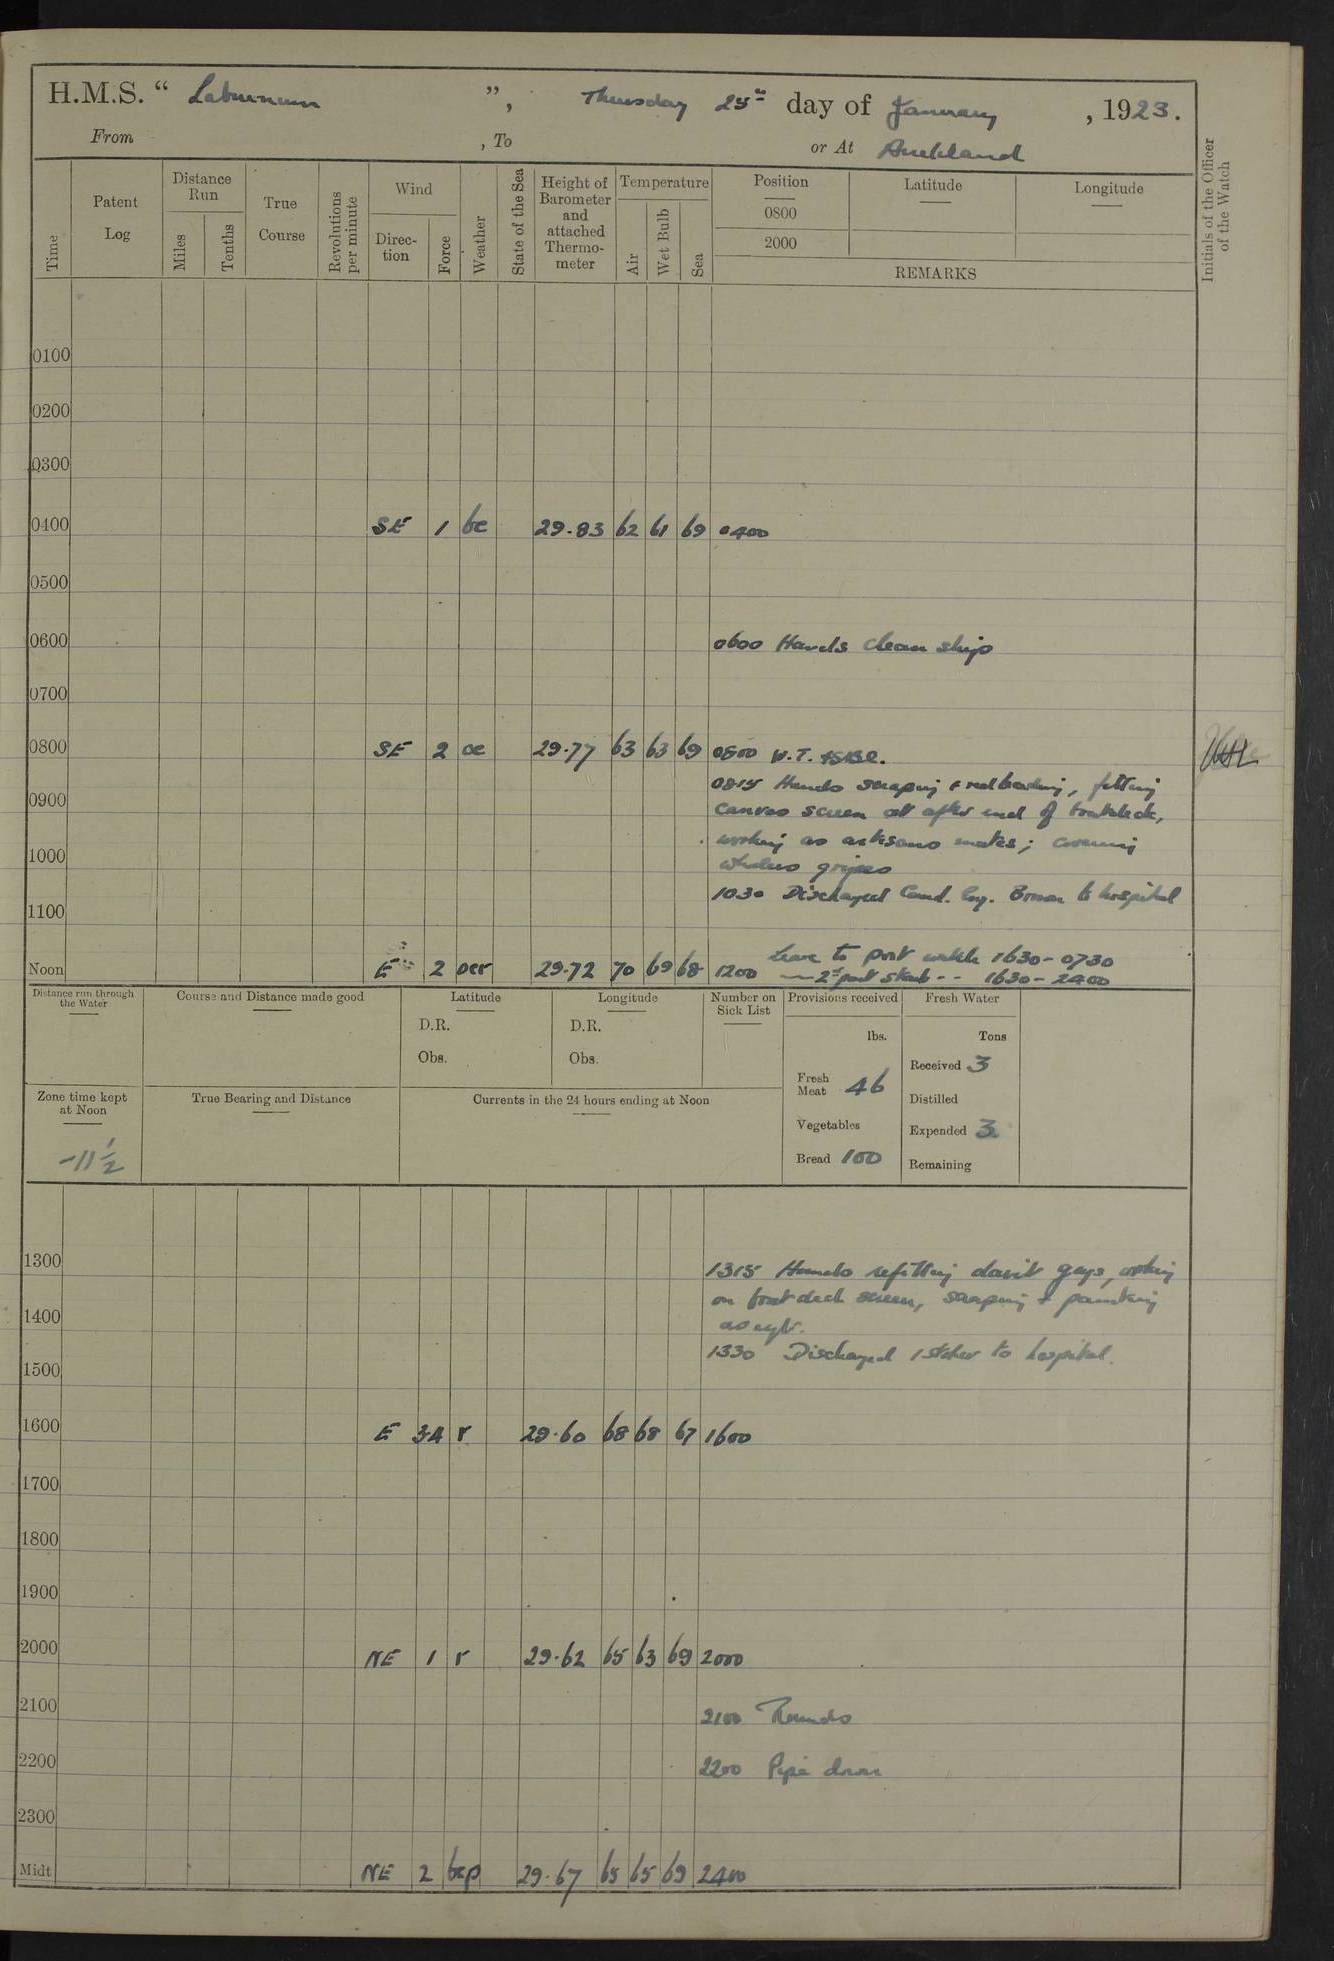 H.M.S. " Laburnum ", Thursday 25th day of January, 1923.
From , To or At Auckland
Time
Patent Log
Distance Run
Miles
Tenths
True Course
Revolutions per minute
Wind
Direction
Force
Weather
State of the Sea
Height of Barometer and attached Thermometer
Temperature
Air
Wet Bulb
Sea
Position
0800
2000
Latitude
Longitude
REMARKS
Initials of the Officer of the Watch
0100
0200
0300
0400 SE 1 bc 29.83 62 61 69 0400
0500
0600 0600 Hands clean ship
0700
0800 SE 2 oc 29.77 63 63 69 0800
0815 Hands scraping + redleading, fitting
0900
canvas screen at after end of boatdeck,
working as artisans mates; covering
1000
whalers gripes
1030 Discharged Hospital to hospital
1100
Leave to port watch 1630-0730
Noon E 2 ocr 29.72 70 69 68 1200 2nd part Starb -- 1630-2400
Distance run through the Water
Course and Distance made good
Latitude
D.R.
Obs.
Longitude
D.R.
Obs.
Number on Sick List
Provisions received
lbs.
Fresh Meat 46
Vegetables
Bread 100
Fresh Water
Tons
Received 3
Distilled
Expended 3
Remaining
Zone time kept at Noon
-11 1/2
True Bearing and Distance
Currents in the 24 hours ending at Noon
1300 1315 Hands refitting davit guys, working
on boatdeck screen, scraping + painting
1400
1330 Discharged 1 Stoker to hospital.
1500
1600 E 34 r 29.60 68 68 67 1600
1700
1800
1900
2000 NE 1 r 29.62 65 63 69 2000
2100 2100 Rounds
2200 2200 Pipe down
2300
Midt NE 2 bcp 29.67 65 65 69 2400